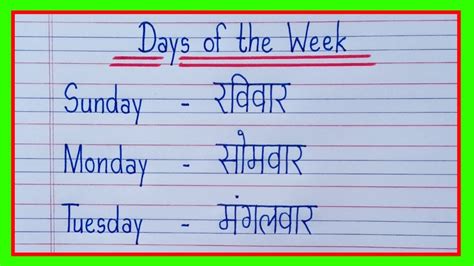 Days of the Week
Sunday - रविवार
Monday - सोमवार
Tuesday - मंगलवार